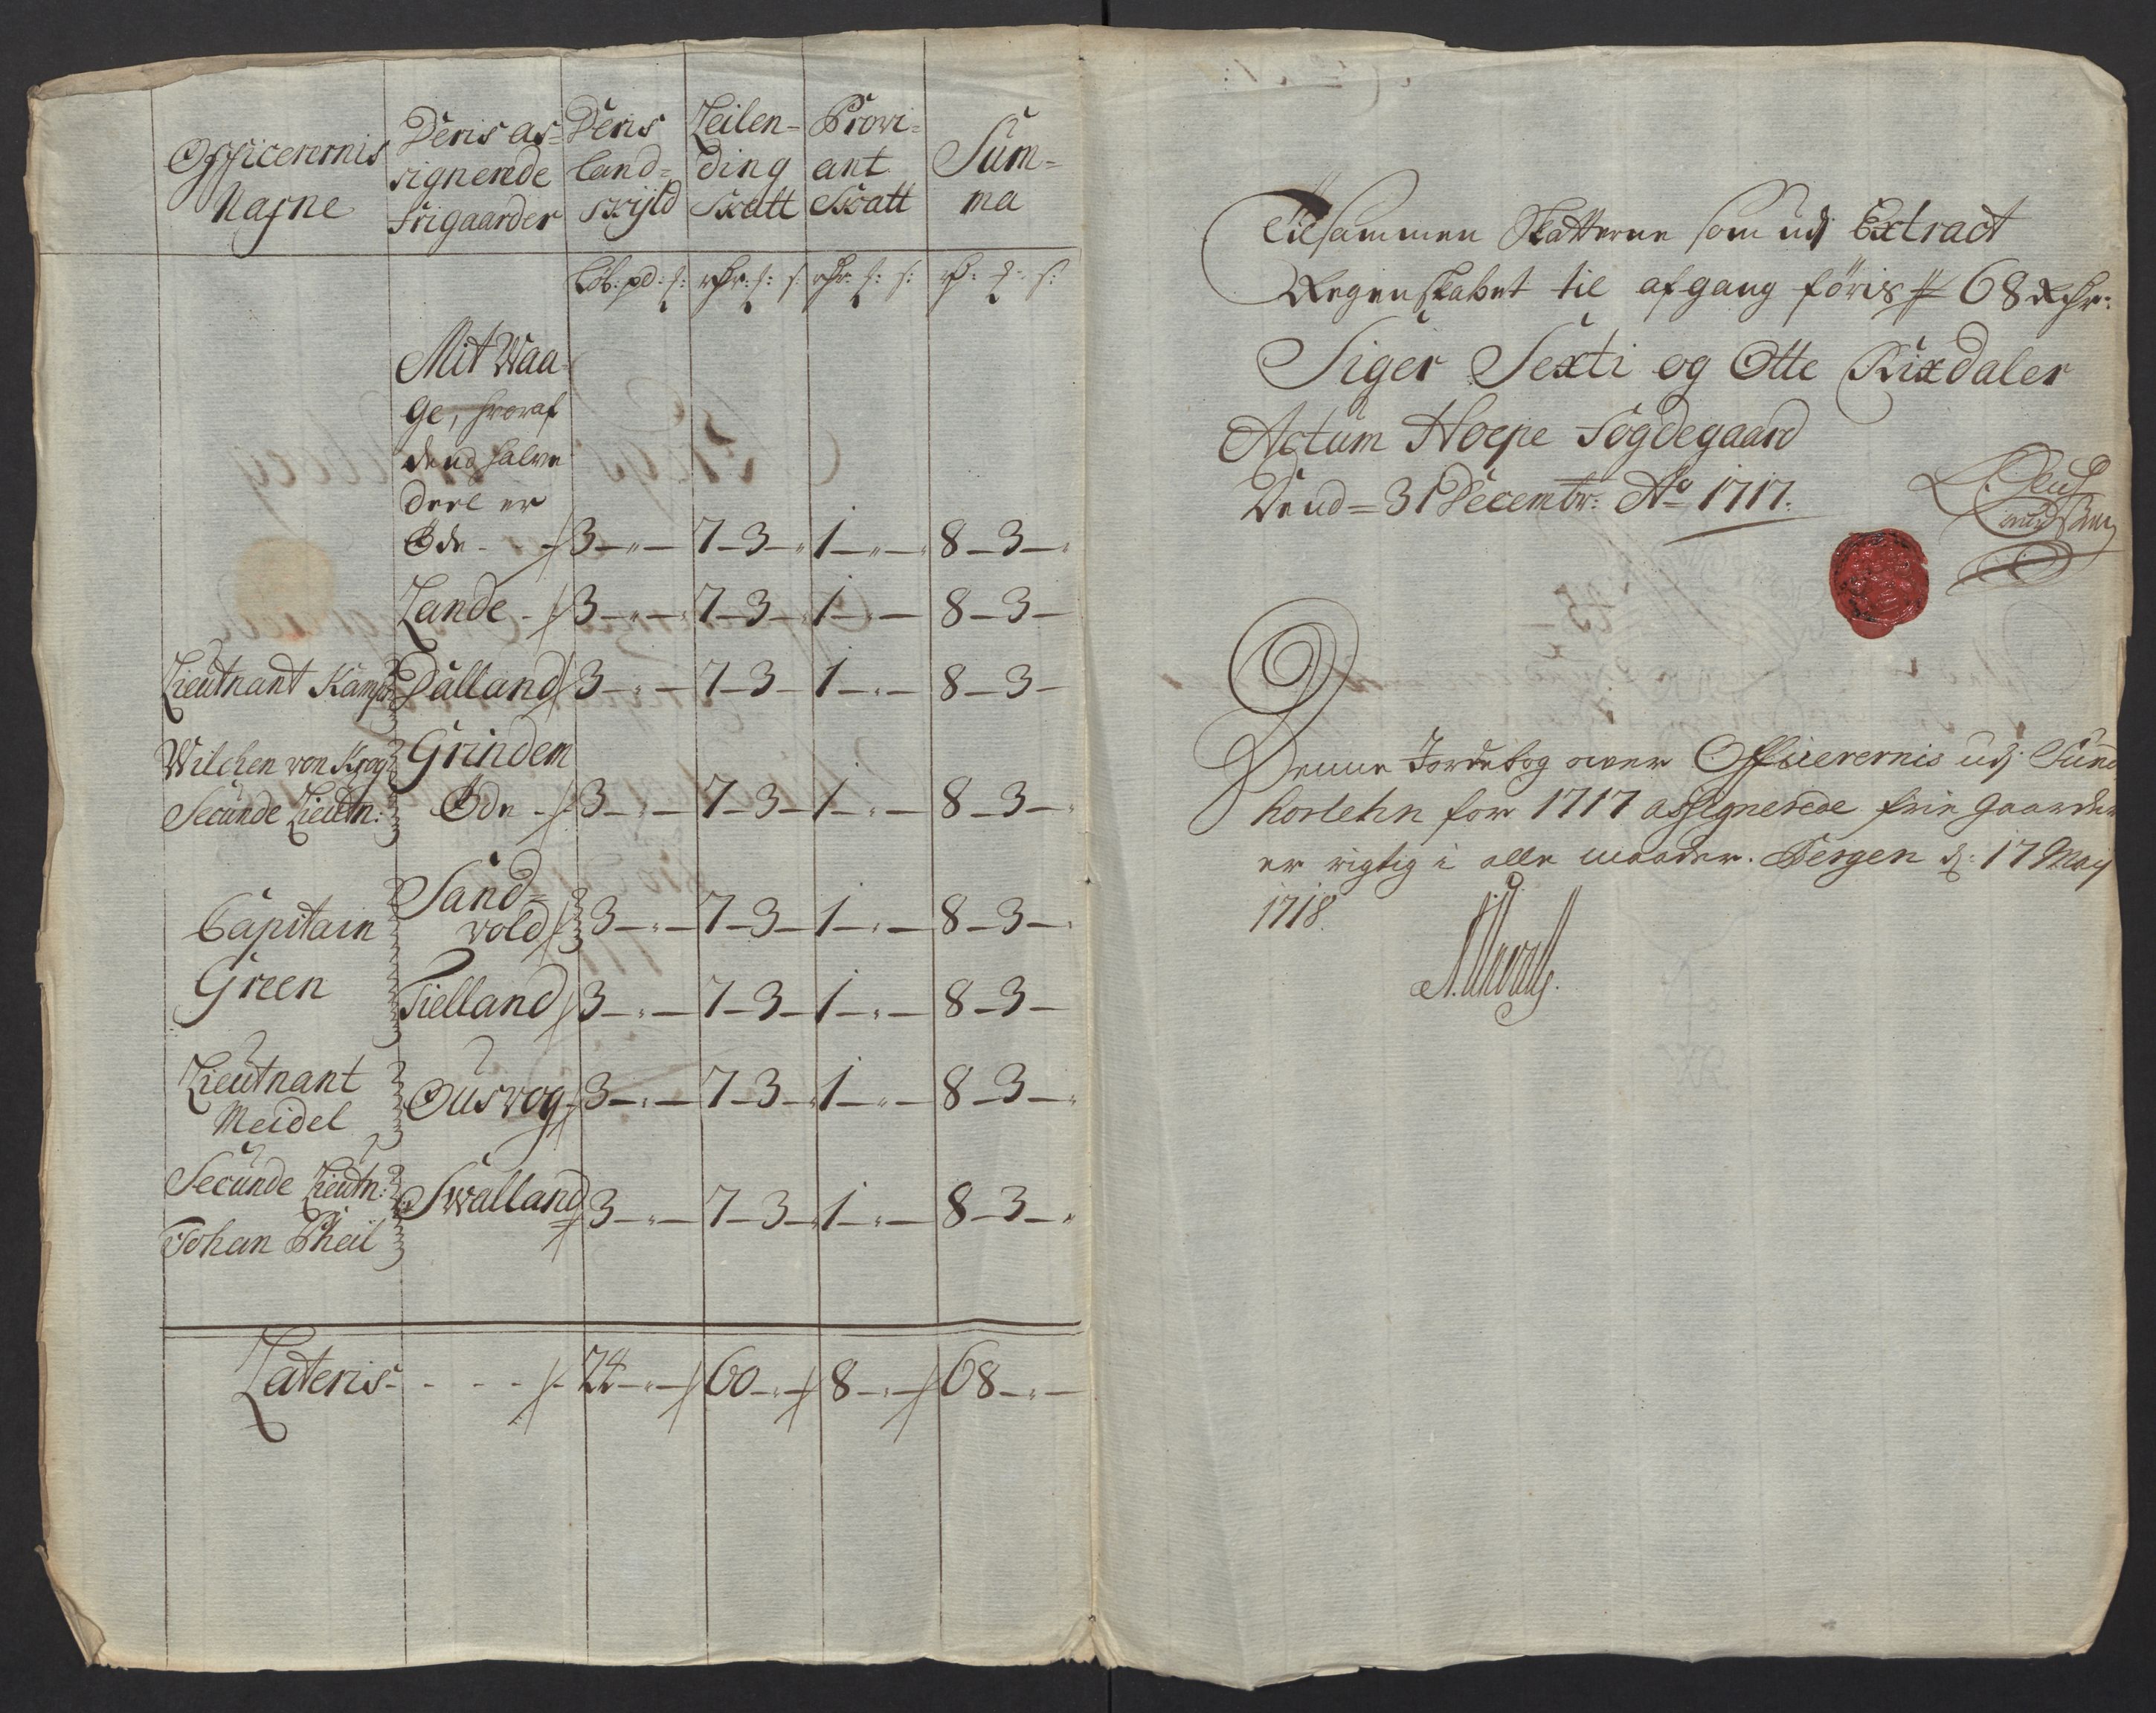 Officerernis
Nafne
Deris as-
signerede
frigaarder
Deris
land-
skyld
Leilen-
ding
Skatt
Provi-
ant
Skatt
Sum-
ma
Løb: pd: f: rdr: f: s: rdr: f: s: rd: f: s:
Mit Waa-
ge, hvoraf
dend halve
Deel er
Øde - 3 - " - 7 - 3 - " 1 - " - 8 - 3 - "
Lande - 3 - " - 7 - 3 - 1 - " - 8 - 3 -
Lieutnant Kamp Dalland 3 - " - 7 - 3 - 1 - " - 8 - 3 -
Wilchen von Krog Grindem
Secunde Lieutn: Øde - 3 - " - 7 - 3 - 1 - " - 8 - 3 - "
Sand-
Capitain vold 3 - " - 7 - 3 - 1 - " - 8 - 3 - "
Green Tielland 3 - " - 7 - 3 - 1 - " - 8 - 3 -
Lieutnant
Meidel Ousvog 3 - " - 7 - 3 - " 1 - " - 8 - 3 - "
Secunde Lieutn: Swalland 3 - " - 7 - 3 - " 1 - " - 8 - 3 - "
Johan Pheil
Lateris - - - - 24 - " - 60 - " - 8 - " - 68 - " -
Tilsammen Skatterne som udj Extract
Regenskabet til afgang føris 68 Rdr:
Siger Sexti og Otte Rixdaler
Actum Hope Fogdegaard
Dend = 31 Decembr: Ao 1717.
Knudsen
Denne Jordebog over Officerernis udj Sund
horlehn for 1717 assignerede frie gaarder
er rigtig i alle maader. Bergen d: 17 Maij
1718.